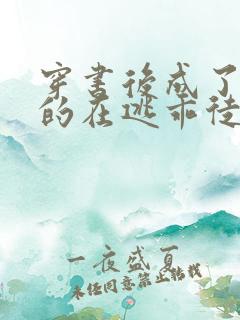 穿书后成了
的在逃乖徒
一夜盛夏
未经同意禁止转载